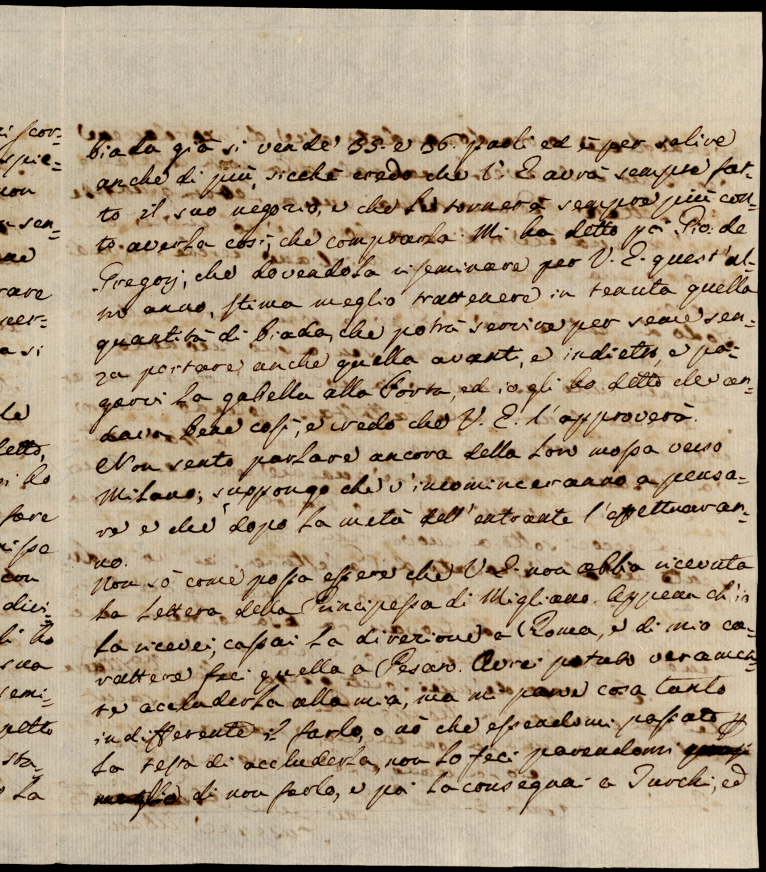 biada già si vende 35. e 36. paoli ed è per salire
anche di più, sicché credo che V. E. avrà sempre fat-
to il suo negozio, e che le tornerà sempre più con-
to averla così, che comprarla. Mi ha detto poi Gio. de
Gregorj, che dovendola riseminare per V. E. quest'al-
tro anno, stima meglio trattenere in tenuta quella
quantità di biada, che potrà servire per seme sen-
za portare anche quella avanti, e indietro e pa-
garvi la gabella alla Porta, ed io gli ho detto che an-
dava bene così, e credo che V. E. l'approverà.
Non sento parlare ancora della loro mossa verso
Milano; suppongo che v'incominceranno a pensa-
re e che dopo la metà dell'entrante l'effettuaran-
no.
Non sò come possa essere che V. E. non abbia ricevuta
la lettera della Principessa di Migliano. Appena ch'io
la ricevei, cassai la direzione a Roma, e di mio ca-
rattere feci quella a Pesaro. Avrei potuto veramen-
te accluderla alla mia, ma mi parve cosa tanto
indifferente il farlo, o nò che essendomi passato p
la testa di accluderla, non lo feci parendomi
meglio di non farlo, e poi la consegnai a Turchi, ed
ri scor-
spie-
non
sen-
rare
a si
le
letto,
ho
fare
con
dici-
ho
sua
semi-
petto
sta-
la